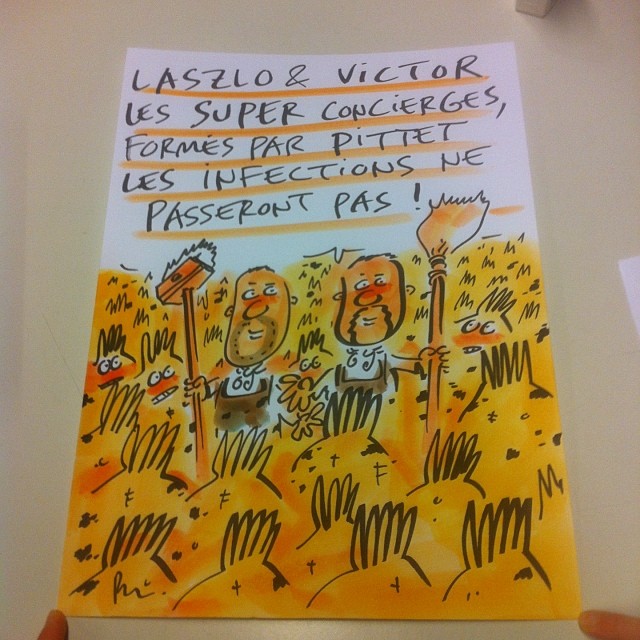 LASZLO & VICTOR
LES SUPER CONCIERGES,
FORMÉS PAR PITTET
LES INFECTIONS NE
PASSERONT PAS !